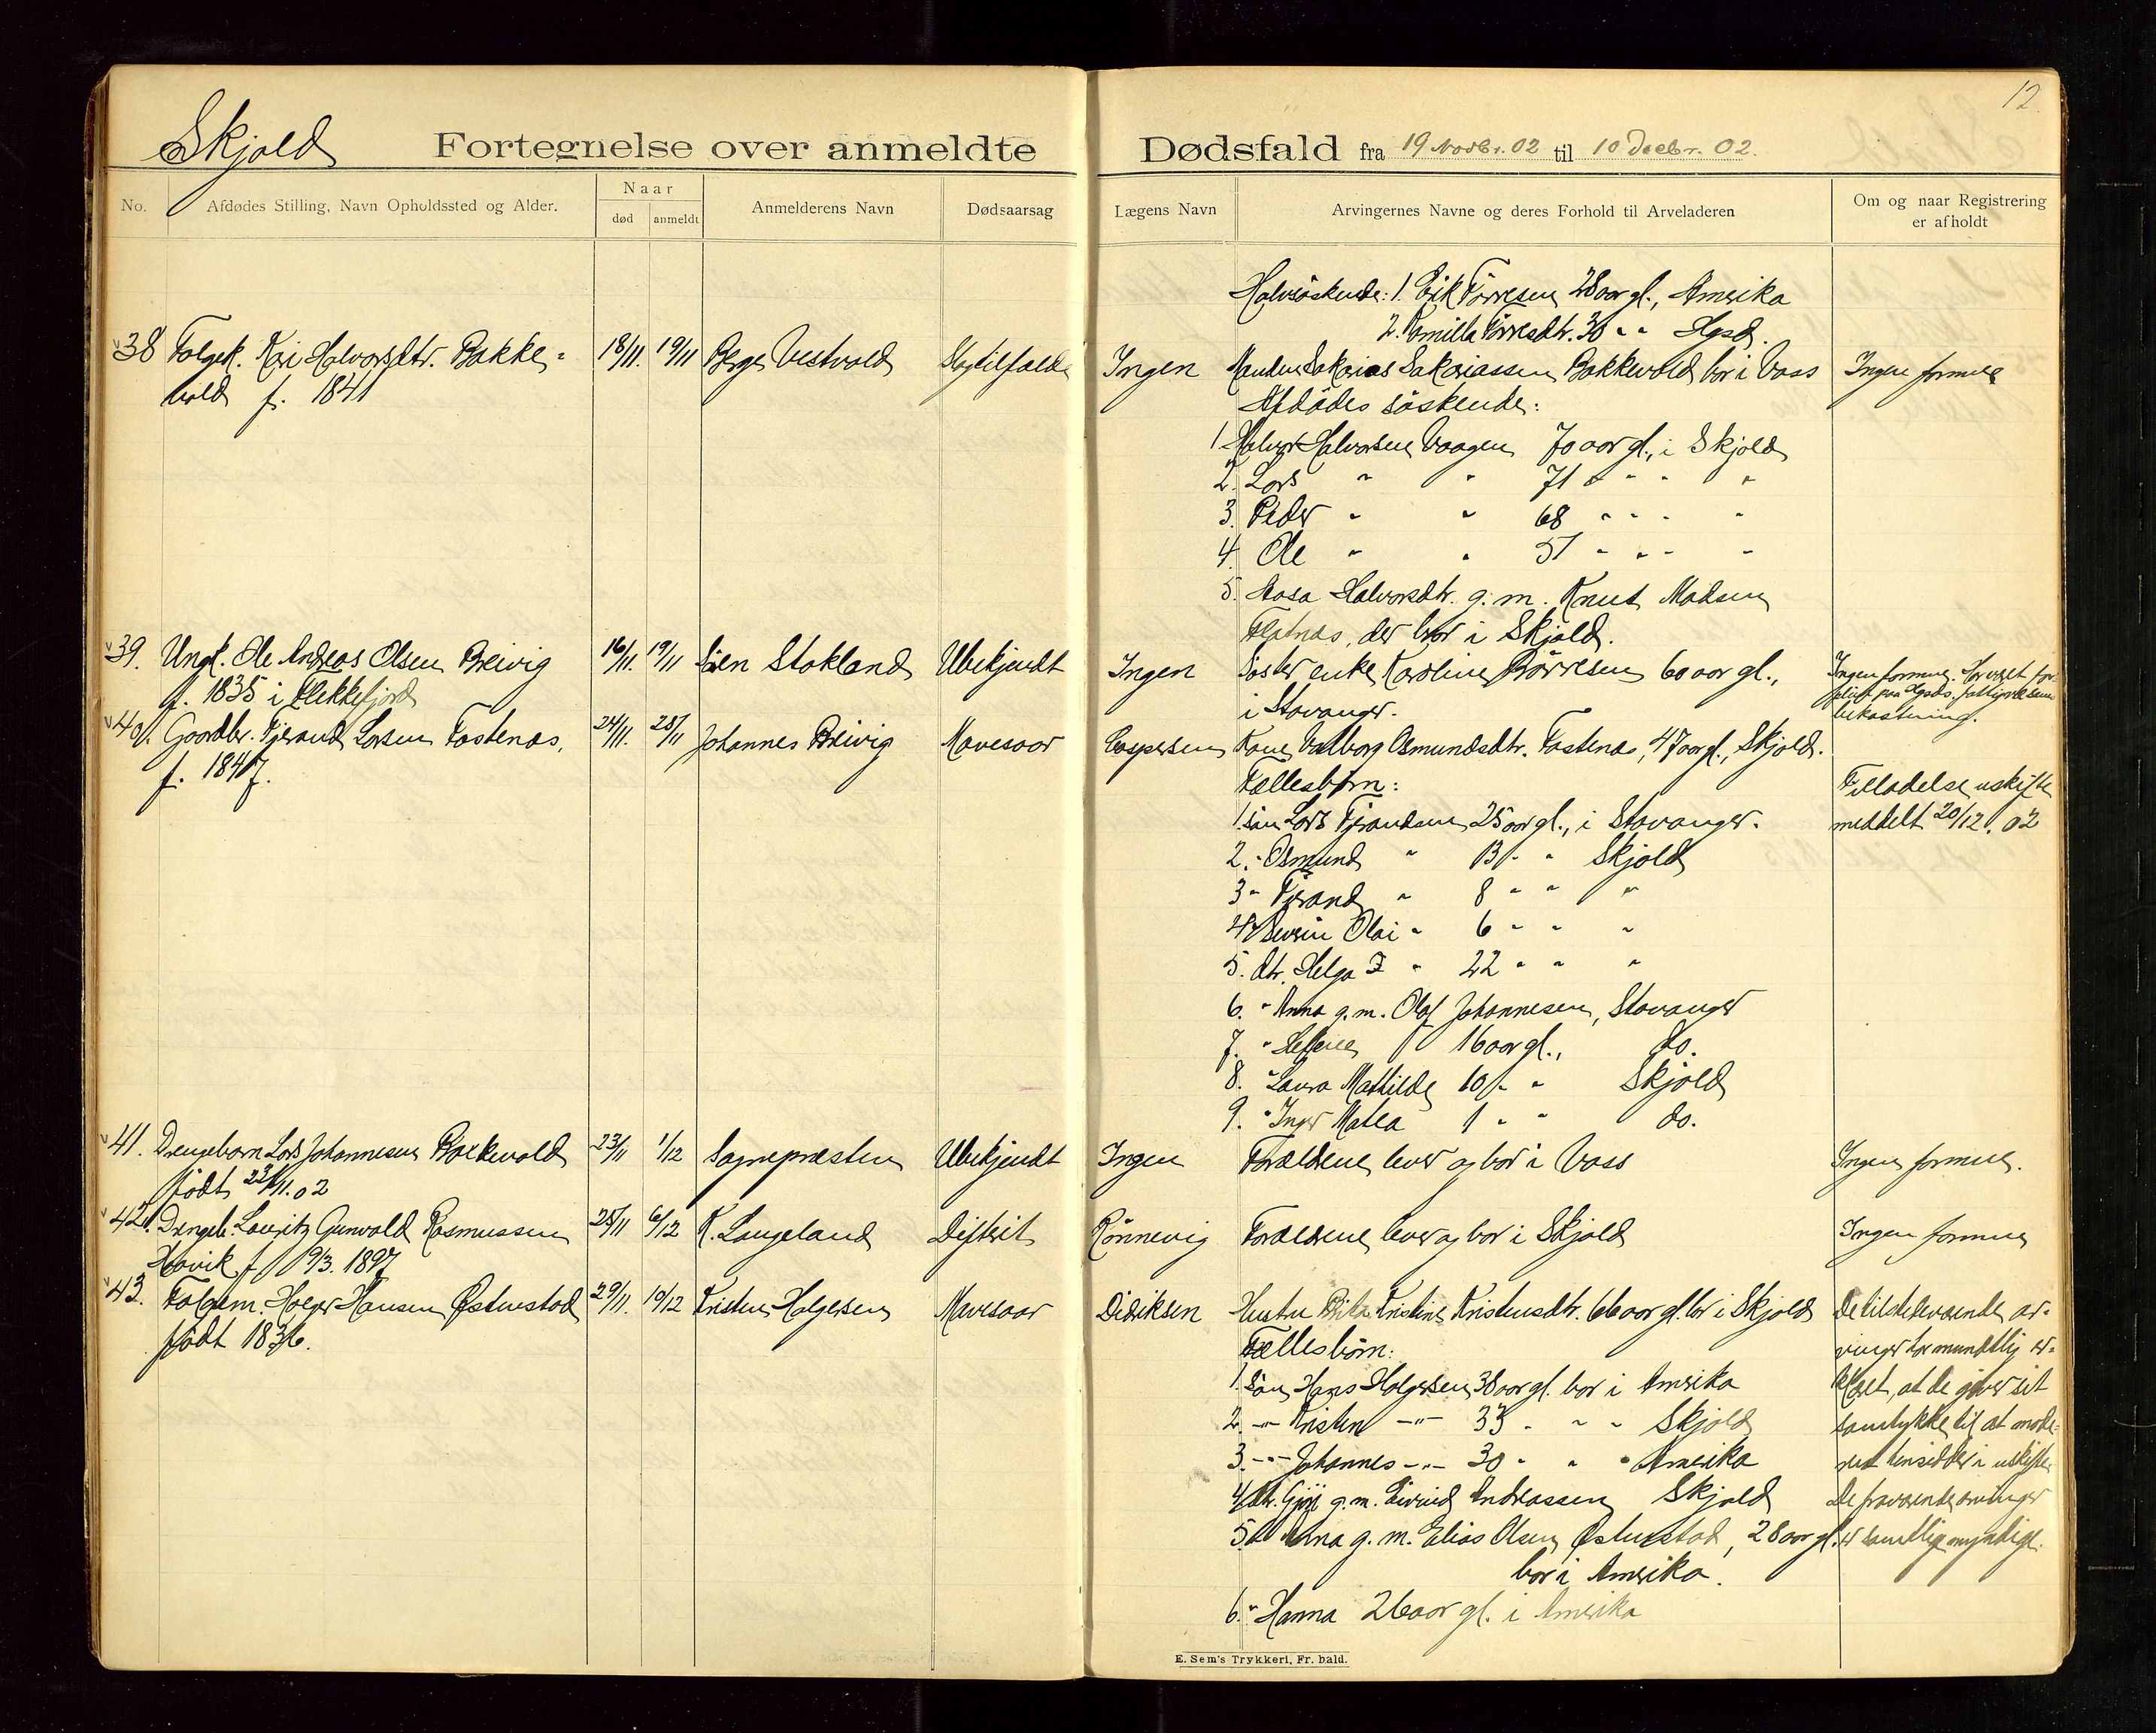 12
Skjold Fortegnelse over anmeldte Dødsfald fra 19 Novbr. 02 til 10 Decbr. 02.
No. Afdødes Stilling, Navn Opholdssted og Alder. Naar død anmeldt Anmelderens Navn Dødsaarsag Lægens Navn Arvingernes Navne og deres Forhold til Arveladeren Om og naar Registrering er afholdt
Halvsöskende: 1. Erik Törresen 28 aar gl., Amerika
2. Kamilla Törresdtr. 30 " " Hgsd.
38 Folgek. Kari Halvorsdtr. Bakke= 18/11. 19/11 Berge Vestvold Slagtilfælde Ingen Manden Sakarias Sakariassen Bakkevold bor i Vass Ingen formue
vold f. 1841 Afdödes söskende:
1. Halvor Halvorsen Vaagen 70 aar gl., i Skjold
2. Lars " " 71 " " " "
3. Peder " " 68 " " " "
4. Ole " " 51 " " " "
5. Aasa Halvorsdtr. g. m. Knut Madsen
Flatnæs, der bor i Skjold.
39. Ungk. Ole Andreas Olsen Breivig 16/11. 19/11 Sven Stakland Ubekjendt Ingen Söster enke Karoline Börresen 60 aar gl., Ingen formue. Har været for-
f. 1835 i Flekkefjord i Stavanger. pleiet paa Hgsds. fattigvæsens bekostning.
40. Gaardbr. Tjerand Larsen Fostenæs, 24/11. 28/11 Johannes Breivig Mavesaar Caspersen Kone Valborg Osmundsdtr. Fostenæs, 47 aar gl., Skjold.
f. 1847. Fællesbörn: Tilladelse uskifte
1. sön Lars Tjerandsen 25 aar gl., i Stavanger. meddelt 20/12. 02
2. " Osmund " 13 " " Skjold
3 " Tjerand " 8 " " "
4 " Severin Olai " 6 " " "
5. dtr. Helga T " 22 " " "
6. " Anna g. m. Olaf Johannesen, Stavanger
7. " 16 aar gl., do.
8. " Laura Mathilde 10 " " Skjold
9. " Inger Matea 1 " " do.
41. Drengebarn Lars Johannesen Bakkevold 23/11 1/12 Sognepresten Ubekjendt Ingen Forældrene lever og bor i Vass Ingen formue.
födt 23/11. 02
42. Drengeb. Lauritz Gunvald Rasmussen 25/11 6/12 K. Langeland Difterit Rönnevig Forældrene lever og bor i Skjold Ingen formue
Hovik f 19/3. 1897
43. Folgem. Holger Hansen Østenstad 29/11. 10/12 Kristen Holgersen Mavesaar Didriksen Hustru Brita Kristine Kristensdtr. 66 aar gl. bor i Skjold De tilstedeværende ar-
födt 1836. Fællesbörn: vinger har mundtlig er-
1. Sön Hans Holgersen 38 aar gl. bor i Amerika klæret, at de giver sit
2. -"- Kristen -"- 33 " " " Skjold samtykke til at mode-
3. -"- Johannes -"- 30 " " " Amerika ren hensidder i uskifte
4. dtr. Gjöri g. m. Eivind Andreassen Skjold De fraværende arvinger
5. " Anna g. m. Elias Olsen Østenstad, 28 aar gl. er samtlige myndige.
bor i Amerika.
6. " Hanna 26 aar gl. i Amerika
E. Sem's Trykkeri, Fr. hald.